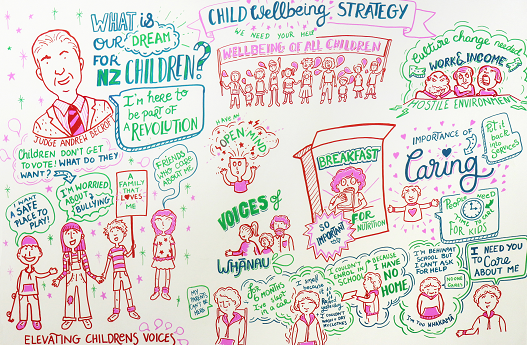 WHAT is
OUR DREAM
FOR
NZ CHILDREN?
I'm here to
be part of
A REVOLUTION
JUDGE ANDREW BECROFT
CHILDREN DON'T GET
TO VOTE! WHAT DO THEY
WANT?
I WANT
A SAFE
PLACE TO
PLAY!
I'M WORRIED
ABOUT
BULLYING!
A FAMILY
THAT LOVES
ME
FRIENDS
WHO CARE
ABOUT ME
ELEVATING CHILDRENS VOICES
CHILD Wellbeing STRATEGY
WE NEED YOUR HELP
WELLBEING OF ALL CHILDREN
Culture change needed
WORK & INCOME
HOSTILE ENVIRONMENT
HAVE AN
OPEN MIND
BREAKFAST
SO
IMPORTANT
FOR
NUTRITION
IMPORTANCE OF
Caring
Put it
back into
SERVICES
PEOPLE NEED
FOR KIDS
VOICES of
WHĀNAU
MY
PARENTS
HERE
6 MONTHS
I slept
in a car
I COULDN'T
ENROL IN
SCHOOL
BECAUSE
I HAVE
NO
HOME
I'M BEHIND AT
SCHOOL BUT
CAN'T ASK
FOR HELP
NO ONE
CARES
I'm TOO WHAKAMĀ
I NEED YOU
TO Care
ABOUT ME